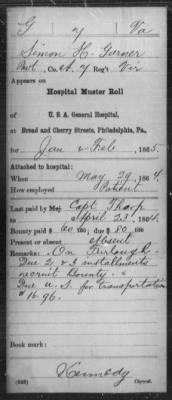 G 7 Va
Simon H. Garner
Pvt., Co. A, 7 Reg't Vir
Appears on
Hospital Muster Roll
of
U. S. A. General Hospital,
at Broad and Cherry Streets, Philadelphia, Pa.,
for Jan & Feb, 1865.
Attached to hospital:
When May 29, 1864
How employed Patient
Last paid by Maj. Capt Tharp
to April 23, 1864.
Bounty paid $ 60 100; due $ 80 100
Present or absent absent
Remarks: On Furlough.
Due 2 & 3 installments
recruit Bounty. &
Due U. S. for transportation
$16.96.
Book mark:
Kennedy
Copyist.